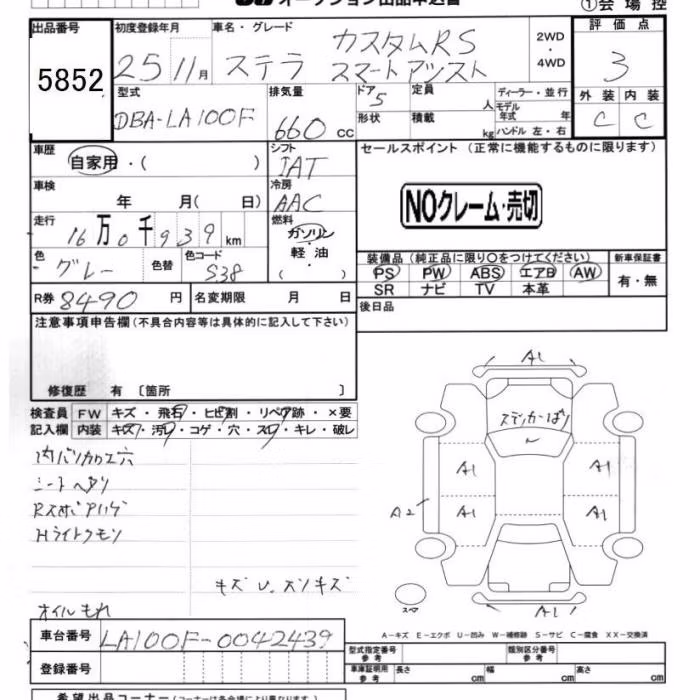 オークション出品申込書
①会場控
出品番号 5852
初度登録年月 25 11月
車名・グレード ステラ カスタムRS スマートアシスト
2WD・4WD
評価点 3
外装 C 内装 C
型式 DBA-LA100F
排気量 660 cc
ドア 5
形状
定員 人
積載 kg
ディーラー・並行
モデル年式 年
ハンドル 左・右
車歴 自家用・( )
シフト IAT
セールスポイント (正常に機能するものに限ります)
車検 年 月( 日)
冷房 AAC
NOクレーム・売切
走行 16万0千939km
燃料 ガソリン・軽油・( )
色 グレー 色替
色コード S38
装備品 (純正品に限り○をつけてください)
新車保証書
PS PW ABS エアB AW
SR ナビ TV 本革
有・無
R券 8490円
名変期限 月 日
後日品
注意事項申告欄(不具合内容等は具体的に記入して下さい)
修復歴 有 〔箇所 〕
検査員記入欄
FW キズ・飛石・ヒビ割・リペア跡・×要
内装 キズ・汚れ・コゲ・穴・スレ・キレ・破レ
内バリカロ工穴
シートヘタリ
Hライトクモリ
キズ U. スリキズ
オイルもれ
A1
ステッカーばり
A1 A1
A2
A1 A1
スペア
A1
A-キズ E-エクボ U-凹み W-補修跡 S-サビ C-腐食 XX-交換済
車台番号 LA100F-0042439
登録番号
型式指定番号 参考
類別区分番号 参考
車庫証明用 参考
長さ cm 幅 cm 高さ cm
希望出品コーナー (コーナーは各会場により異なります)